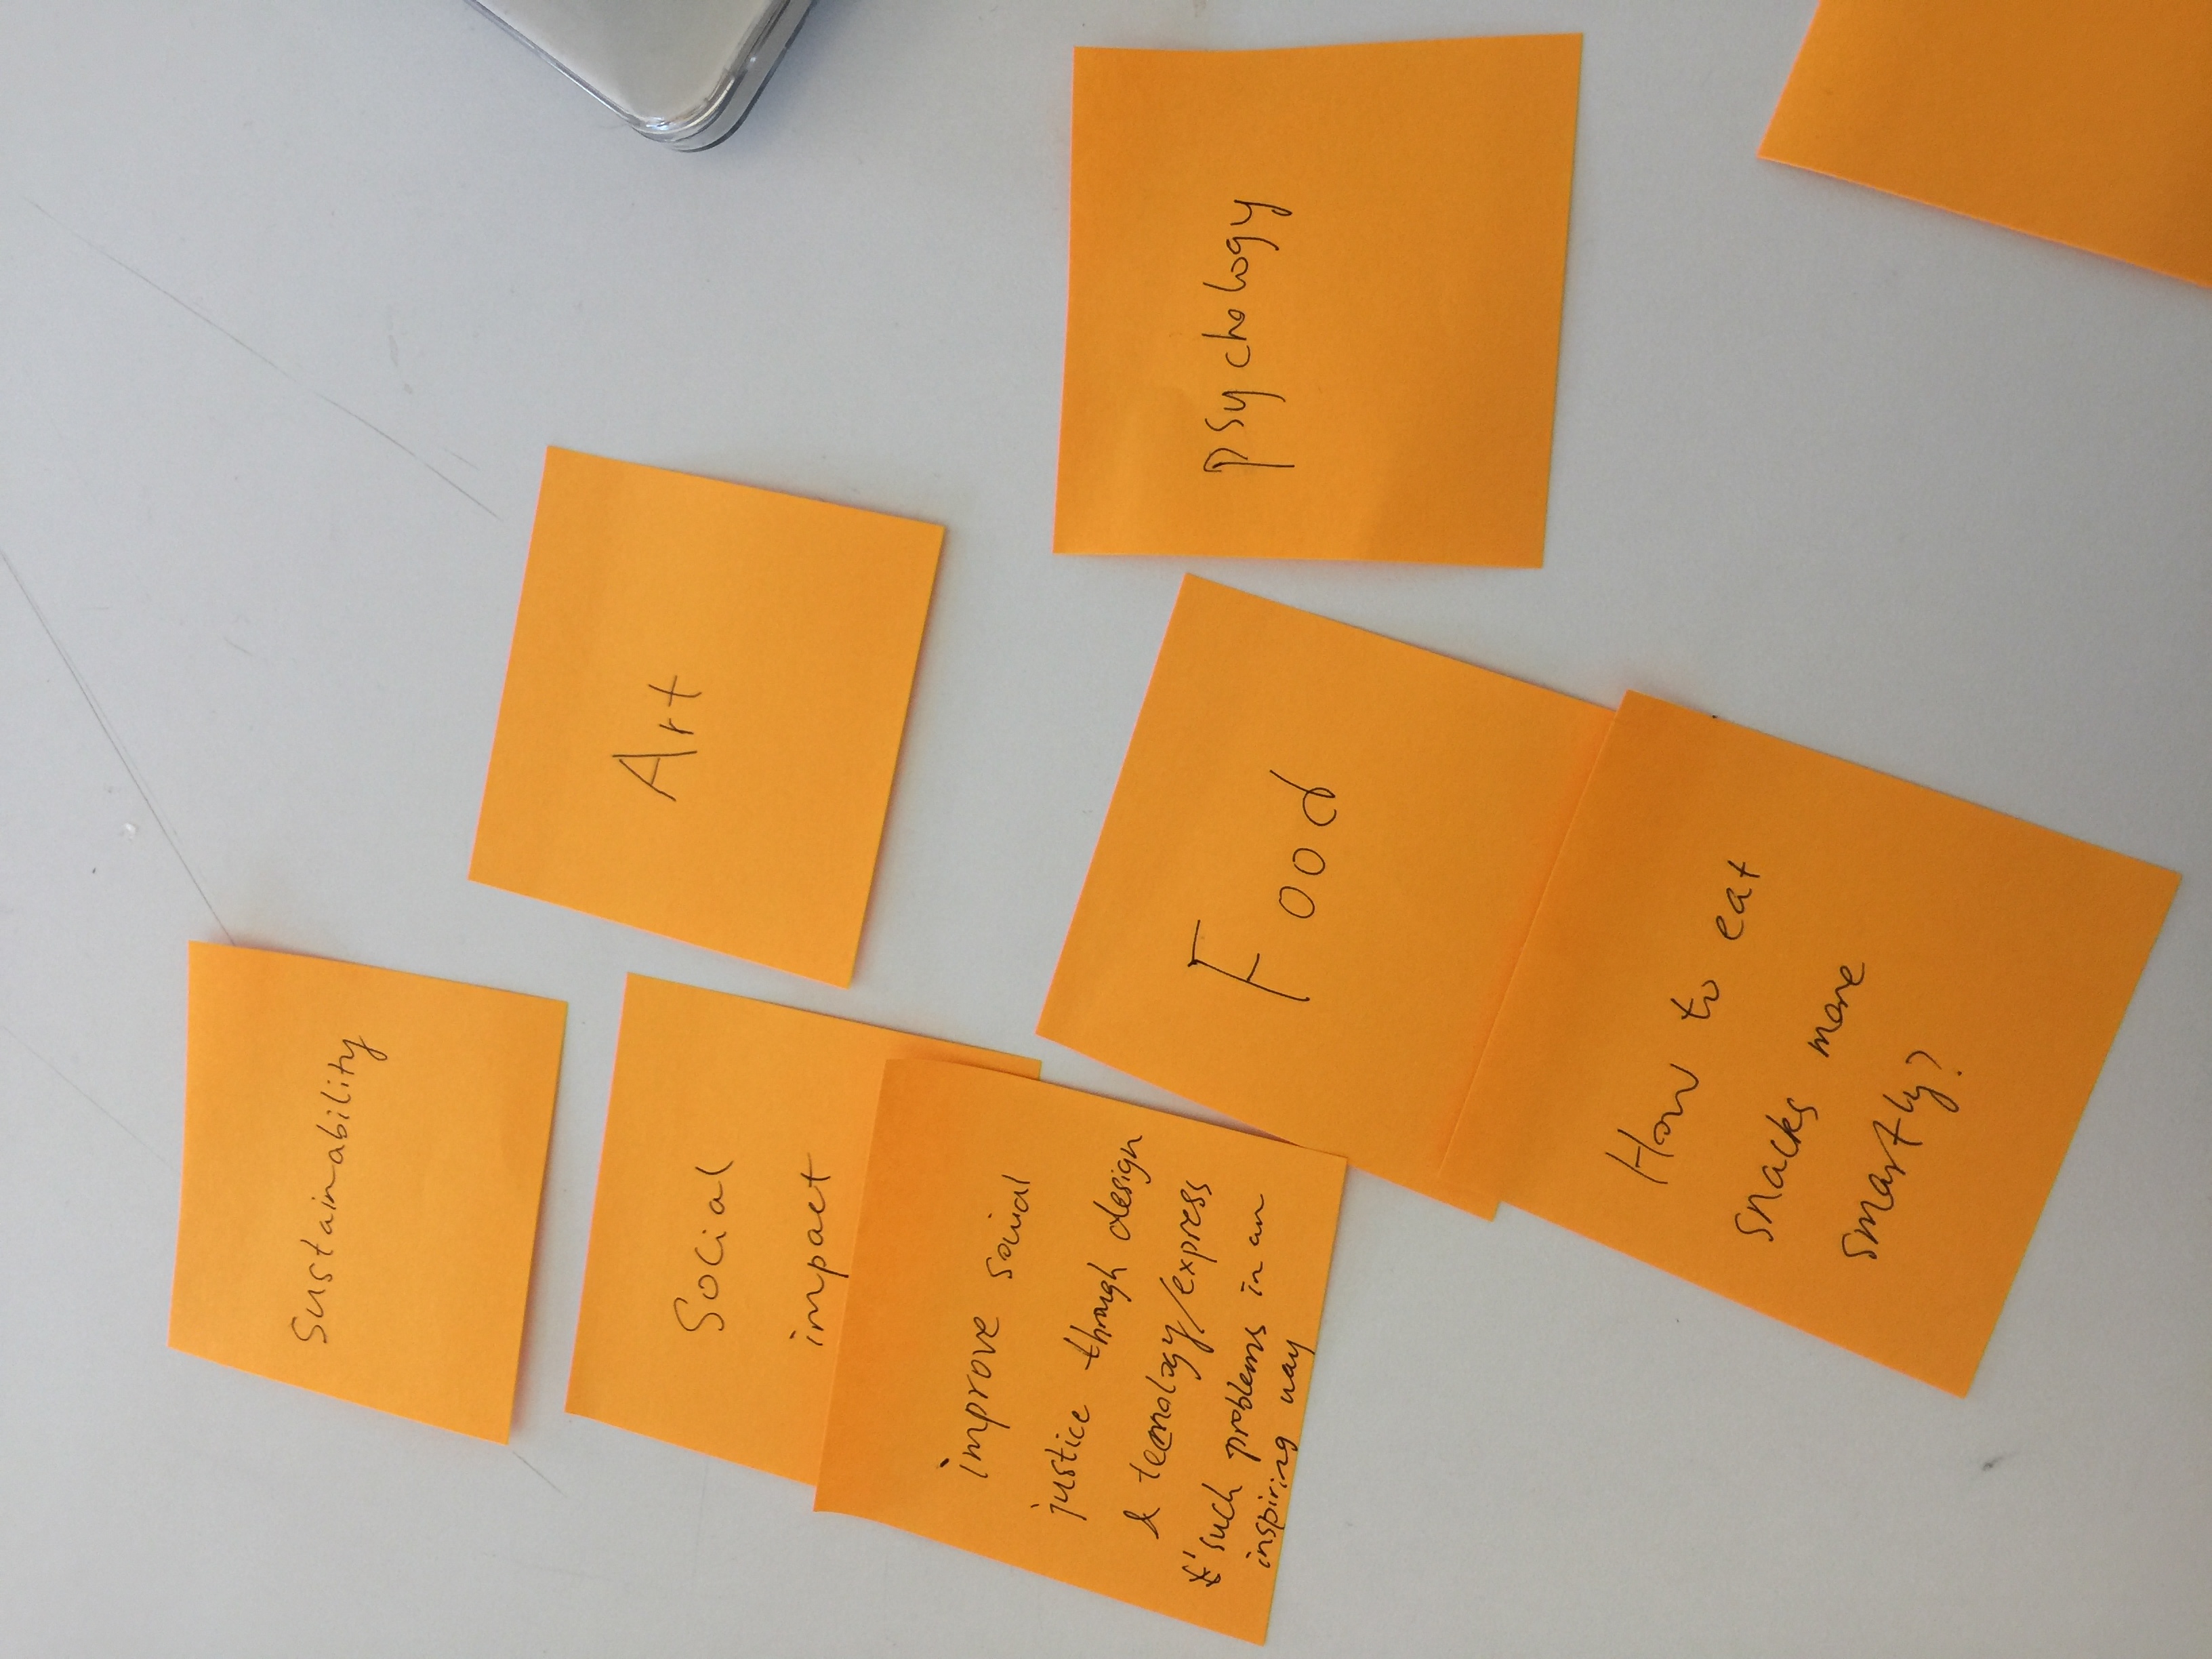 Sustainability
Social
impact
improve social
justice through design
& tecnology/express
such problems in an
inspiring way
Art
Food
How to eat
snacks more
smartly?
psychology